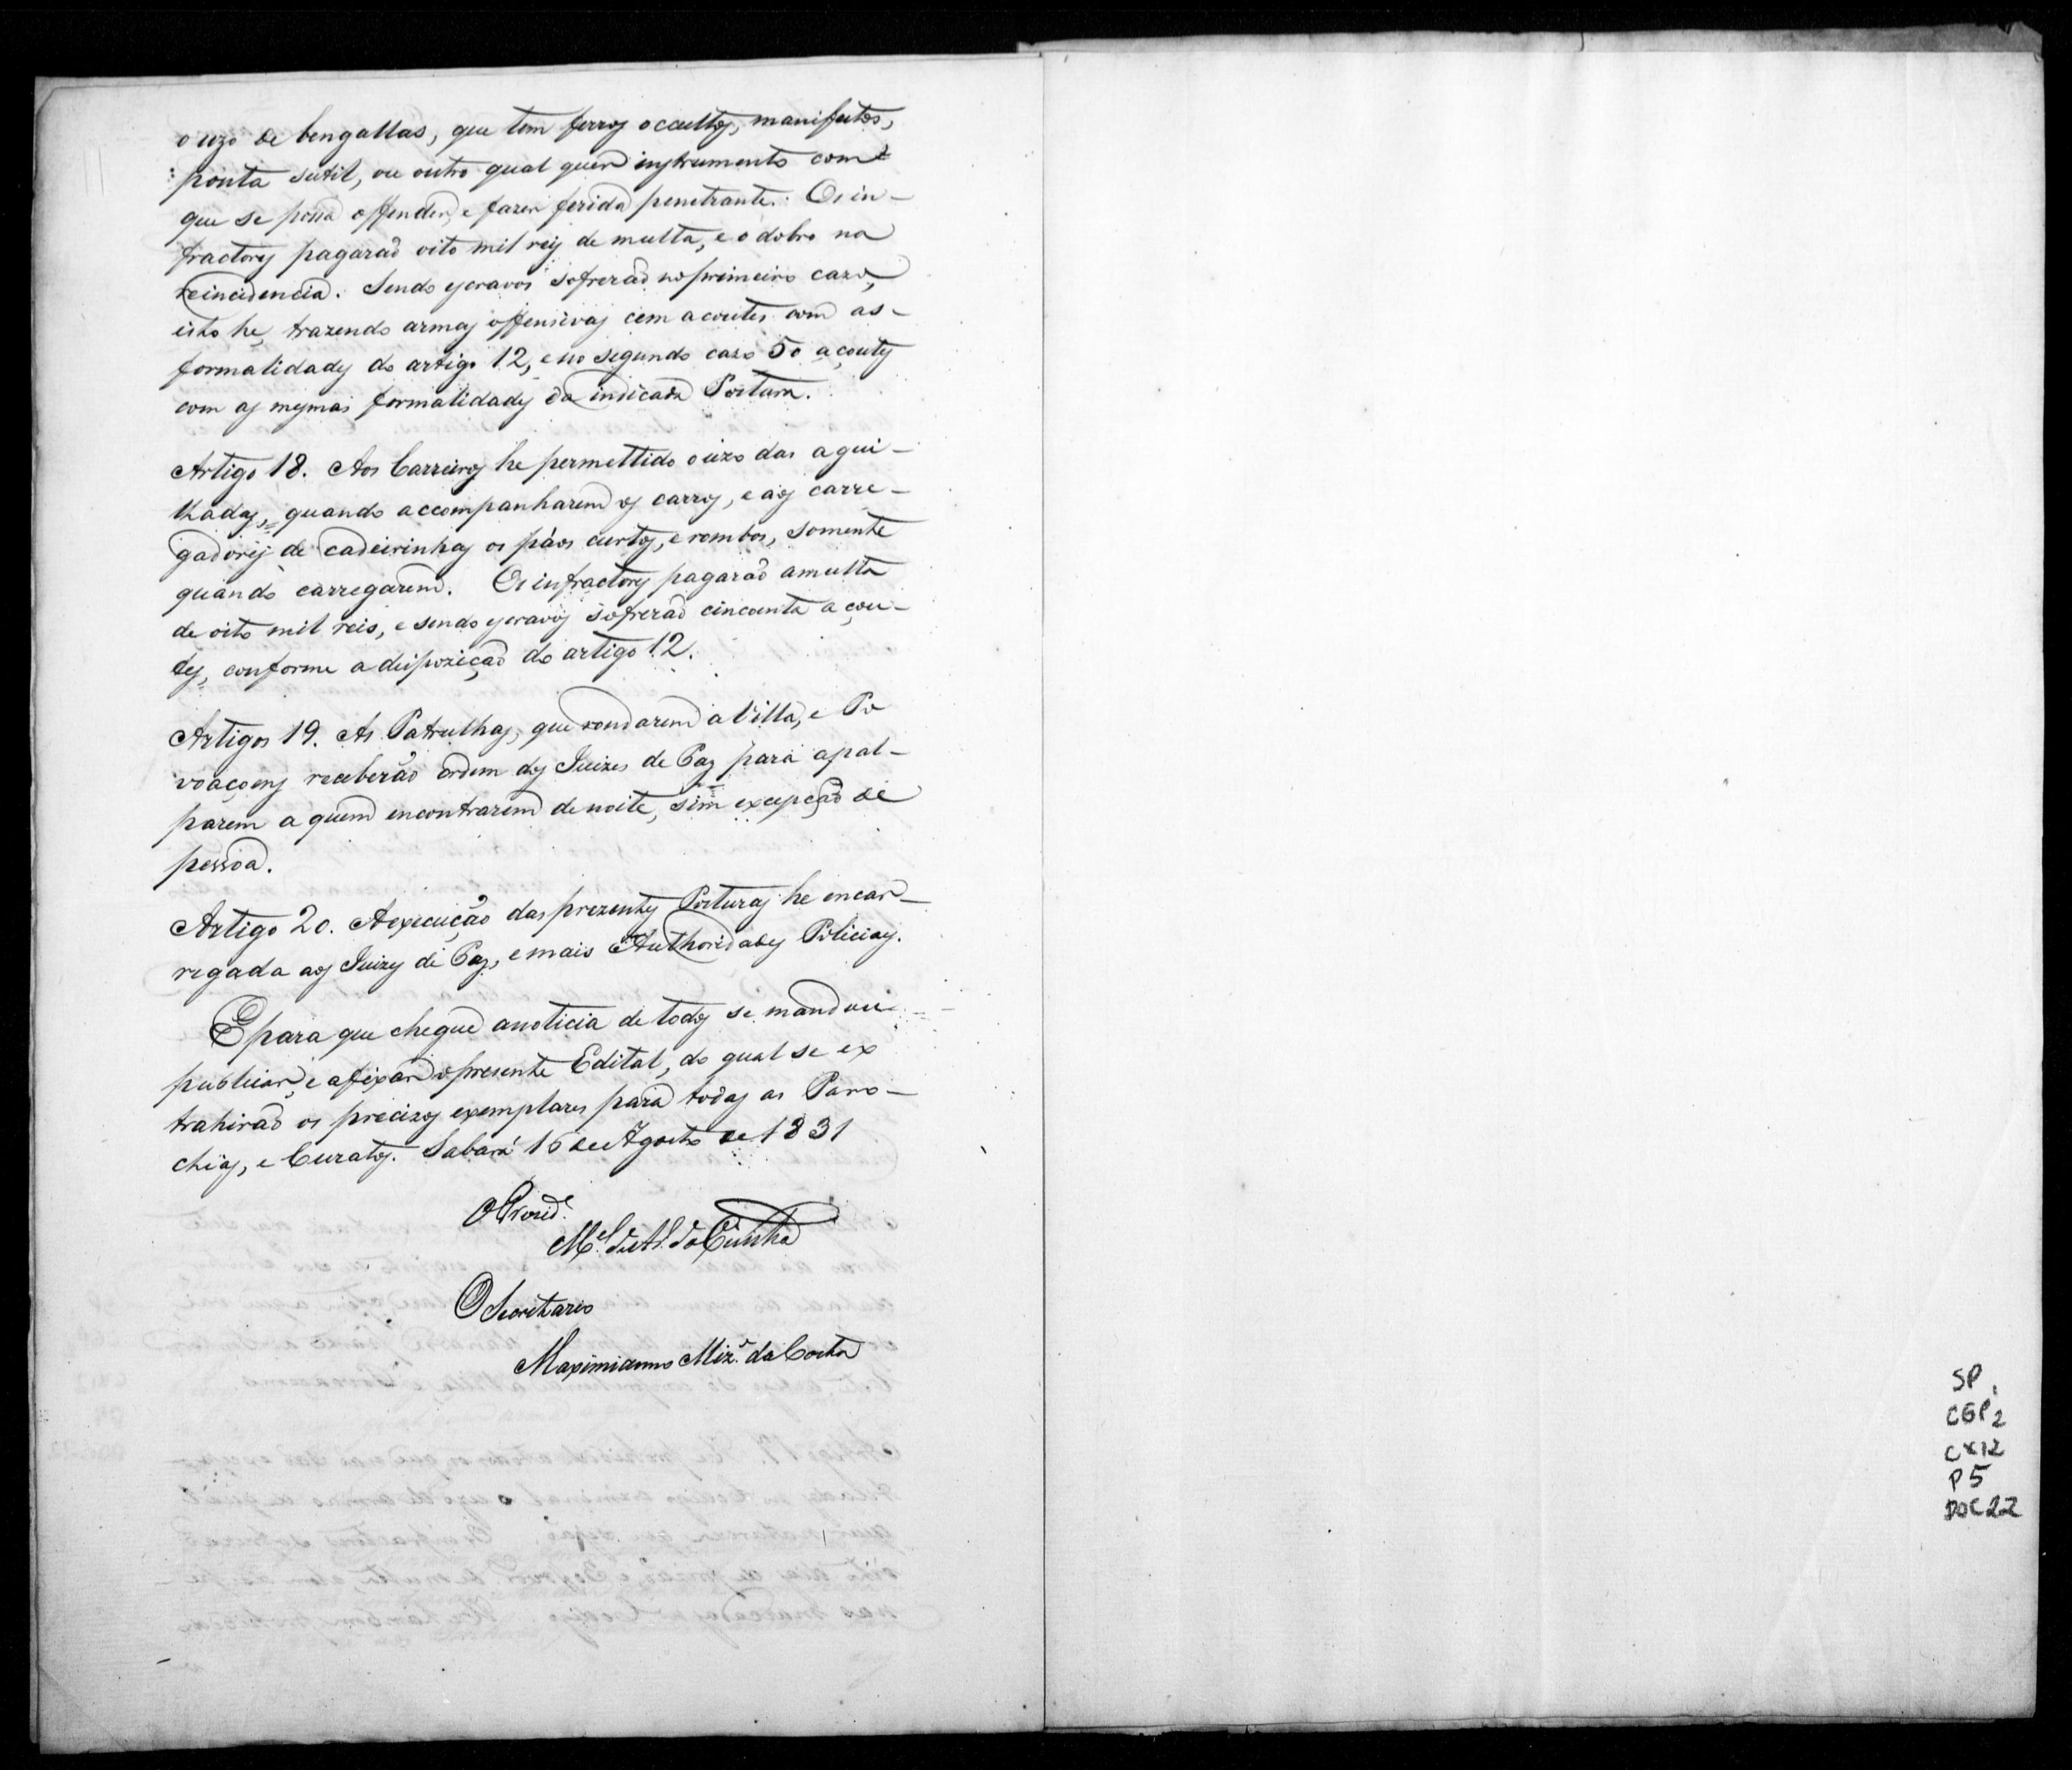 o uzo de bengallas, que tem ferros occultos, manifestos,
ponta sutil, ou outro qual quer instrumento com
que se possa offender, e fazer ferida penetrante. Os in-
fractores pagaraõ oito mil reis de multa, e o dobro na
reincidencia. Sendo escravos sofreraõ no primeiro cazo,
isto he, trazendo armas offensivas cem acoutes com as-
formalidades do artigo 12, e no segundo cazo 50 açoutes
com as mesmas formalidades da indicada Postura.
Artigo 18. Aos Carreiros he permettido o uzo das agui-
lhadas, quando accompanharem os carros, e aos carre-
gadores de cadeirinhas os páos curtos, e rombos, somente
quando carregarem. Os infractores pagaraõ a multa
de oito mil reis, e sendo escravos sofreraõ cincoenta açou-
tes, conforme a dispoziçaõ do artigo 12.
Artigos 19. As Patrulhas, que rondarem a Villa, e Po
voaçoens receberão ordem dos Juizes de Paz para apal-
parem a quem encontrarem de noite, sem excepçaõ de
pessoa.
Artigo 20. A execução das prezentes Posturas he encar-
regada aos Juizes de Paz, e mais Authoridades Policiaes.
E para que chegue a noticia de todos se mandou
publicar, e afixar o presente Edital, do qual se ex
trahiraõ os precizos exemplares para todas as Paro-
chias, e Curatos. Sabará 15 de Agosto de 1831
O Prezid.e
M.el da Cunha
O Secretario
Maximianno Miz. da Costa
SP
CGP2
CX12
P5
DOC22